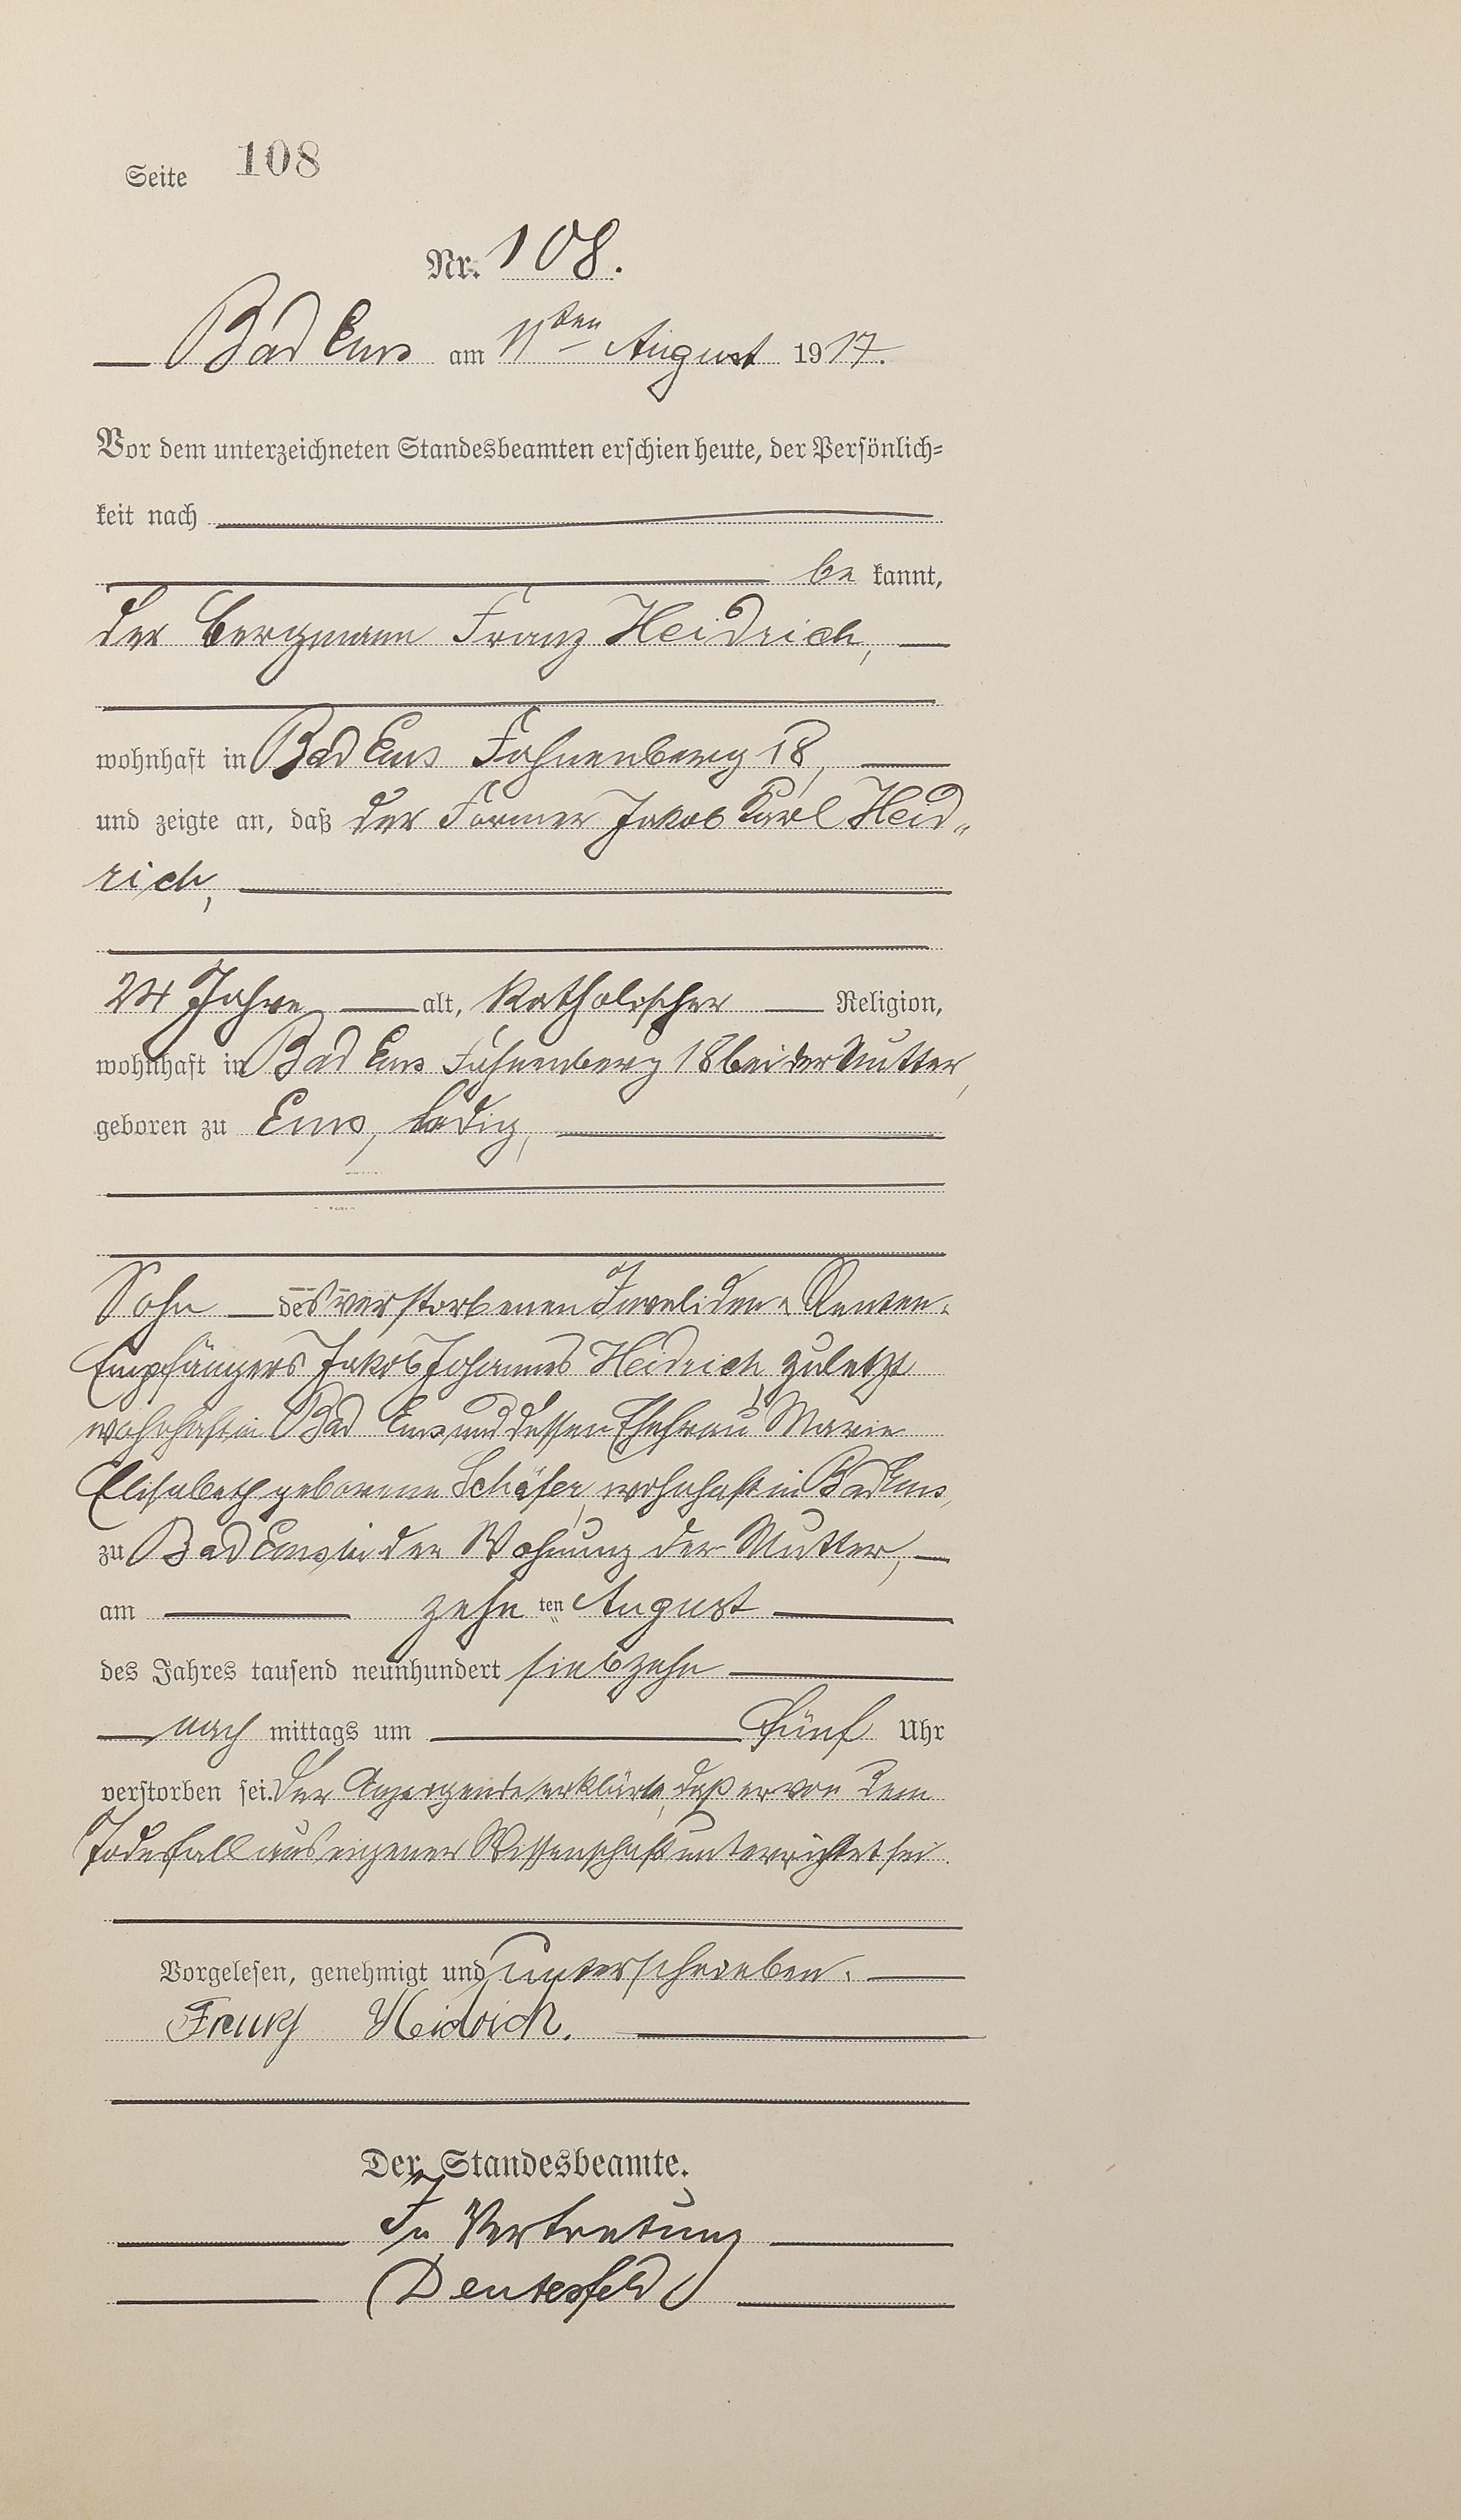 Seite 108
Nr. 108.
Bad Ems am 11ten August 1917.
Vor dem unterzeichneten Standesbeamten erschien heute, der Persönlich-
keit nach
be kannt,
der Bergmann Franz Heidrich,
wohnhaft in Bad Ems Fahnenberg 18,
und zeigte an, daß der Former Jakob Karl Heid-
rich,
24 Jahre alt, katholischer Religion,
wohnhaft in Bad Ems Fahnenberg 18 bei der Mutter,
geboren zu Ems, ledig,
Sohn des verstorbenen Invaliden-Renten-
Empfängers Jakob Johannes Heidrich, zuletzt
wohnhaft in Bad Ems und dessen Ehefrau Marie
Elisabeth geborene Schäfer, wohnhaft in Bad Ems,
zu Bad Ems in der Wohnung der Mutter,
am zehn ten August
des Jahres tausend neunhundert siebzehn
nach mittags um fünf Uhr
verstorben sei. Der Anzeigende erklärte, daß er von dem
Todesfall aus eigener Wissenschaft unterrichtet sei.
Vorgelesen, genehmigt und unterschrieben.
Franz Heidrich.
Der Standesbeamte.
In Vertretung
Deutesfeld